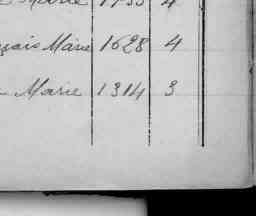 Marie 1755 4
çais Marie 1628 4
Marie 1314 3